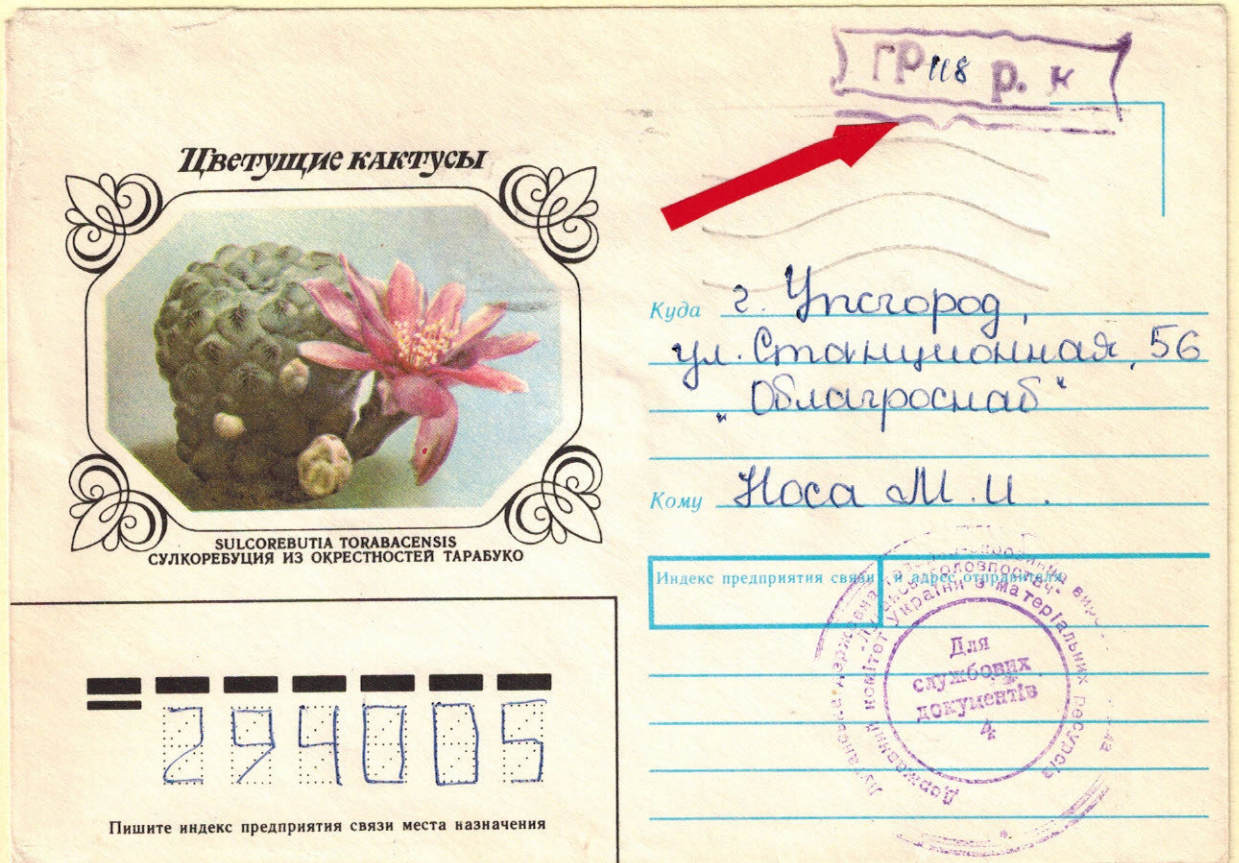 ГР 118 р. к
Цветущие кактусы
SULCOREBUTIA TORABACENSIS
СУЛКОРЕБУЦИЯ ИЗ ОКРЕСТНОСТЕЙ ТАРАБУКО
Куда г. Ужгород,
ул. Станционная, 56
„Облагроснаб"
Кому Носа М. И.
Индекс предприятия связи и адрес отправителя
Державний комітет України з матеріальних ресурсів
Для
службових
документів
4
294005
Пишите индекс предприятия связи места назначения